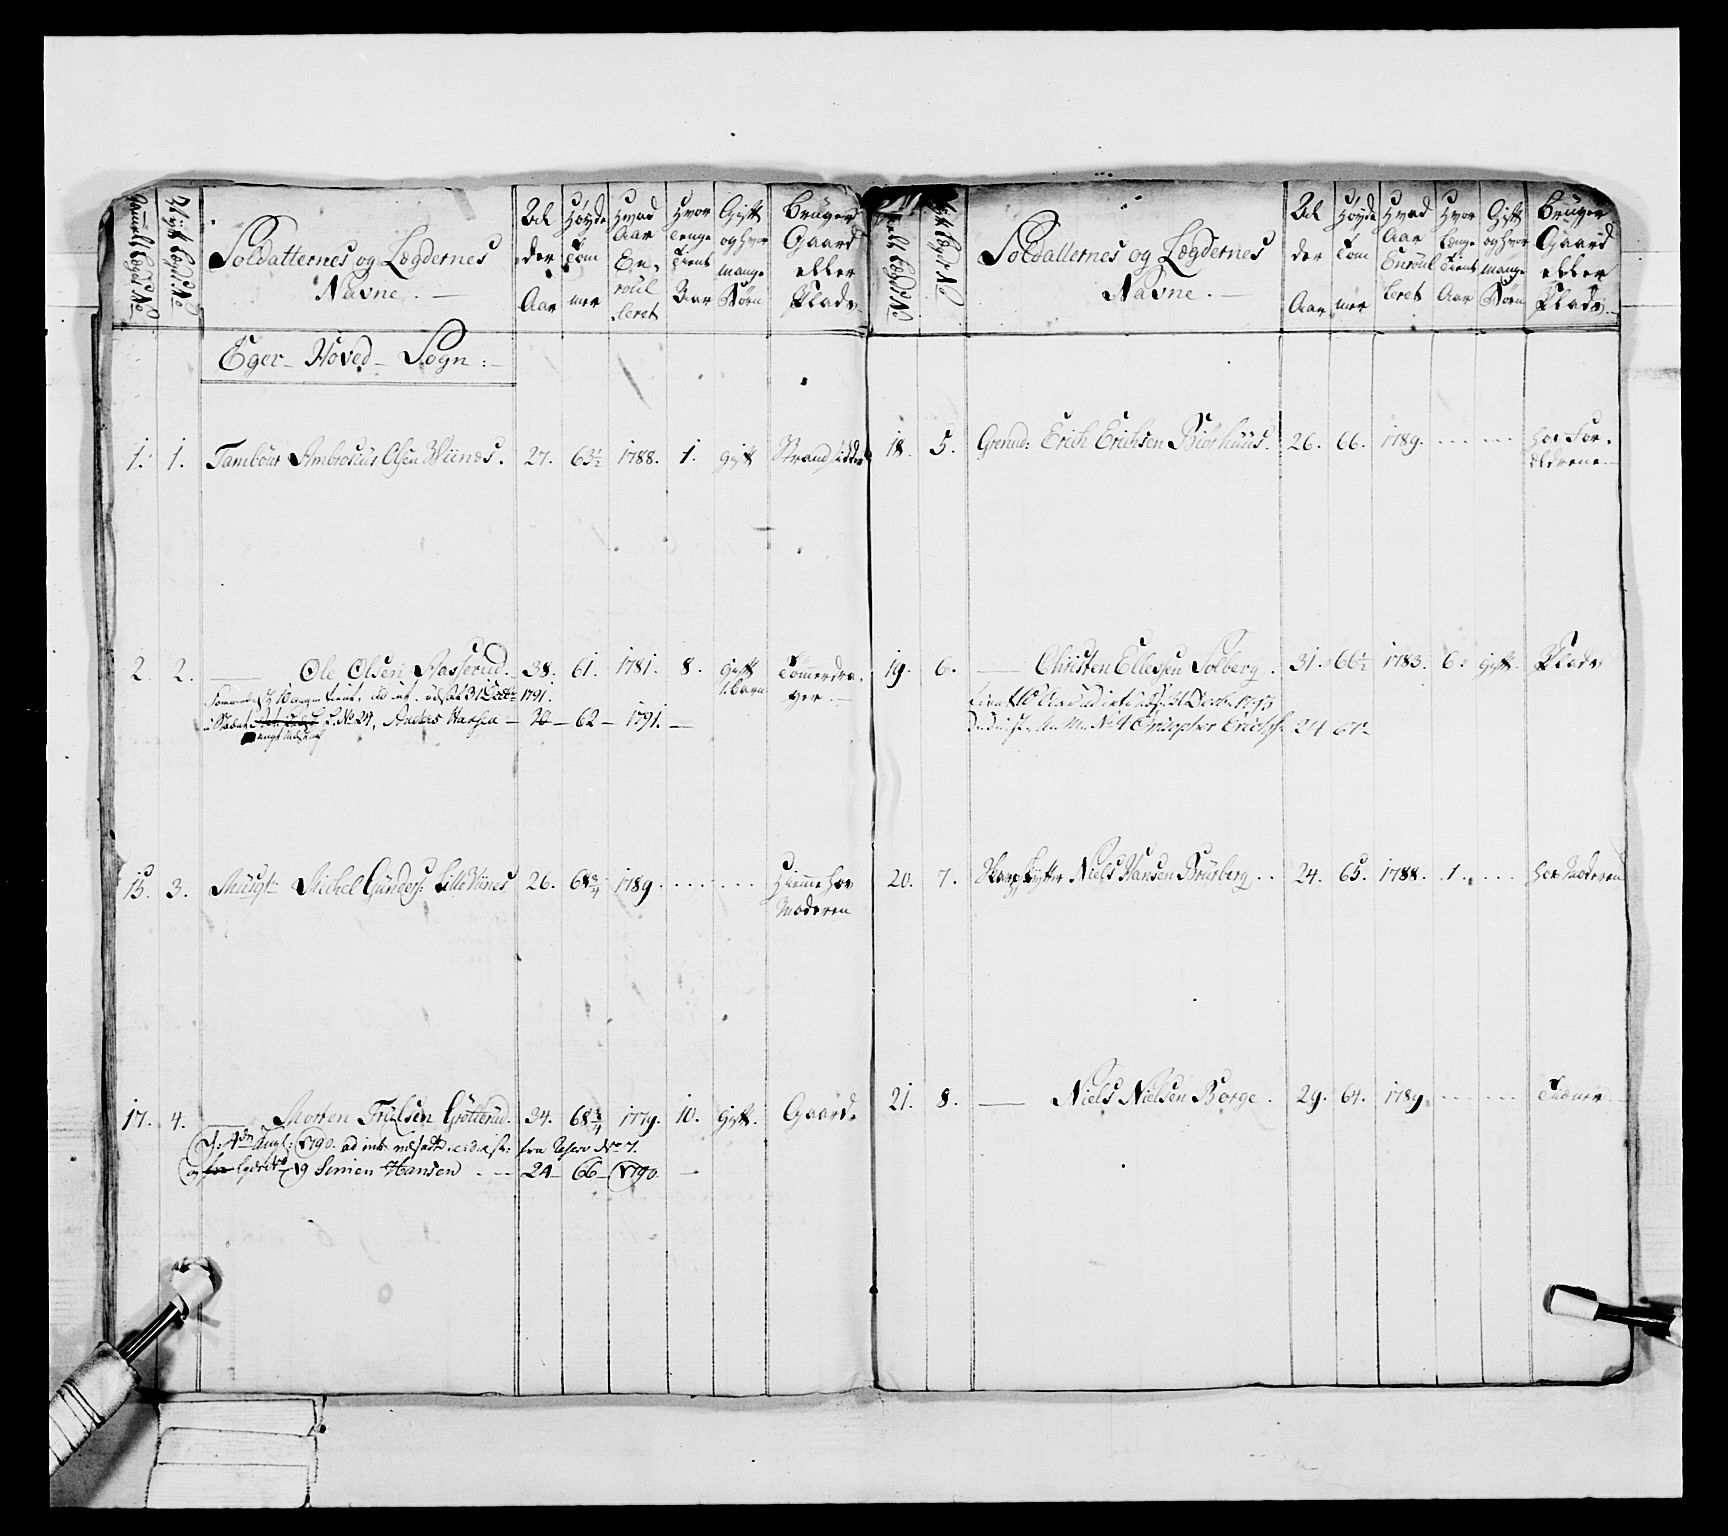 Gammelt Lægds No
Nyt Lægds No
Soldatternes og Lægdernes
Navne.
Al
der
Aar
Høyde
Tom
mer
Hvad
Aar
En-
roul
leret
Hvor
lenge
tient
Aar
Gift
og hvor
mange
Børn
Bruger
Gaard
eller
Plads
Eger Hoved Sogn:
1. 1. Tambour Ambrosius Olsen Wiines. 27. 63½ 1788. 1. gift Strandsidder
2. 2. — Ole Olsen Aasserud. 38. 61. 1781. 8. gift Tømerdra-
1. barn ger.
10 aar tient, udsat 31 Decbr 1791.
No 24, Anders Hansen — 20 — 62 — 1791. —
15. 3. Musqt Michel Gunders: Lille Wiines 26. 68¾ 1789. . . . . . . Hiemme hos
Moderen
17. 4. Morten Trulsen Grøtterud. 34. 68¾ 1779. 10. gift. Gaard.
1790.
No 19 Simen Hansen . — 24 — 66 — 1790. —
Nyt Lægds No
Soldatternes og Lægdernes
Navne.
Al
der
Aar
Høyde
Tom
mer
Hvad
Aar
Enroul
leret
Hvor
længe
tient
Aar
Gift
og hvor
mange
Børn
Bruger
Gaard
eller
Plads
18. 5. Grenad: Erich Erichsen Burhuus. 26. 66. 1789. . . . . . . hos For-
ældrene.
19. 6. — Christen Ellessen Solberg. 31. 66½ 1783. 6. gift. Plads
tient 10 Aar
No 4 Christopher Erichs: 24 67
20. 7. Skarpskytte Niels Hansen Brusberg. . 24. 65. 1788. 1. . . . hos Moderen
21. 8. — Niels Nielsen Borge. 29. 64. 1789. . . . . . . Tiener.